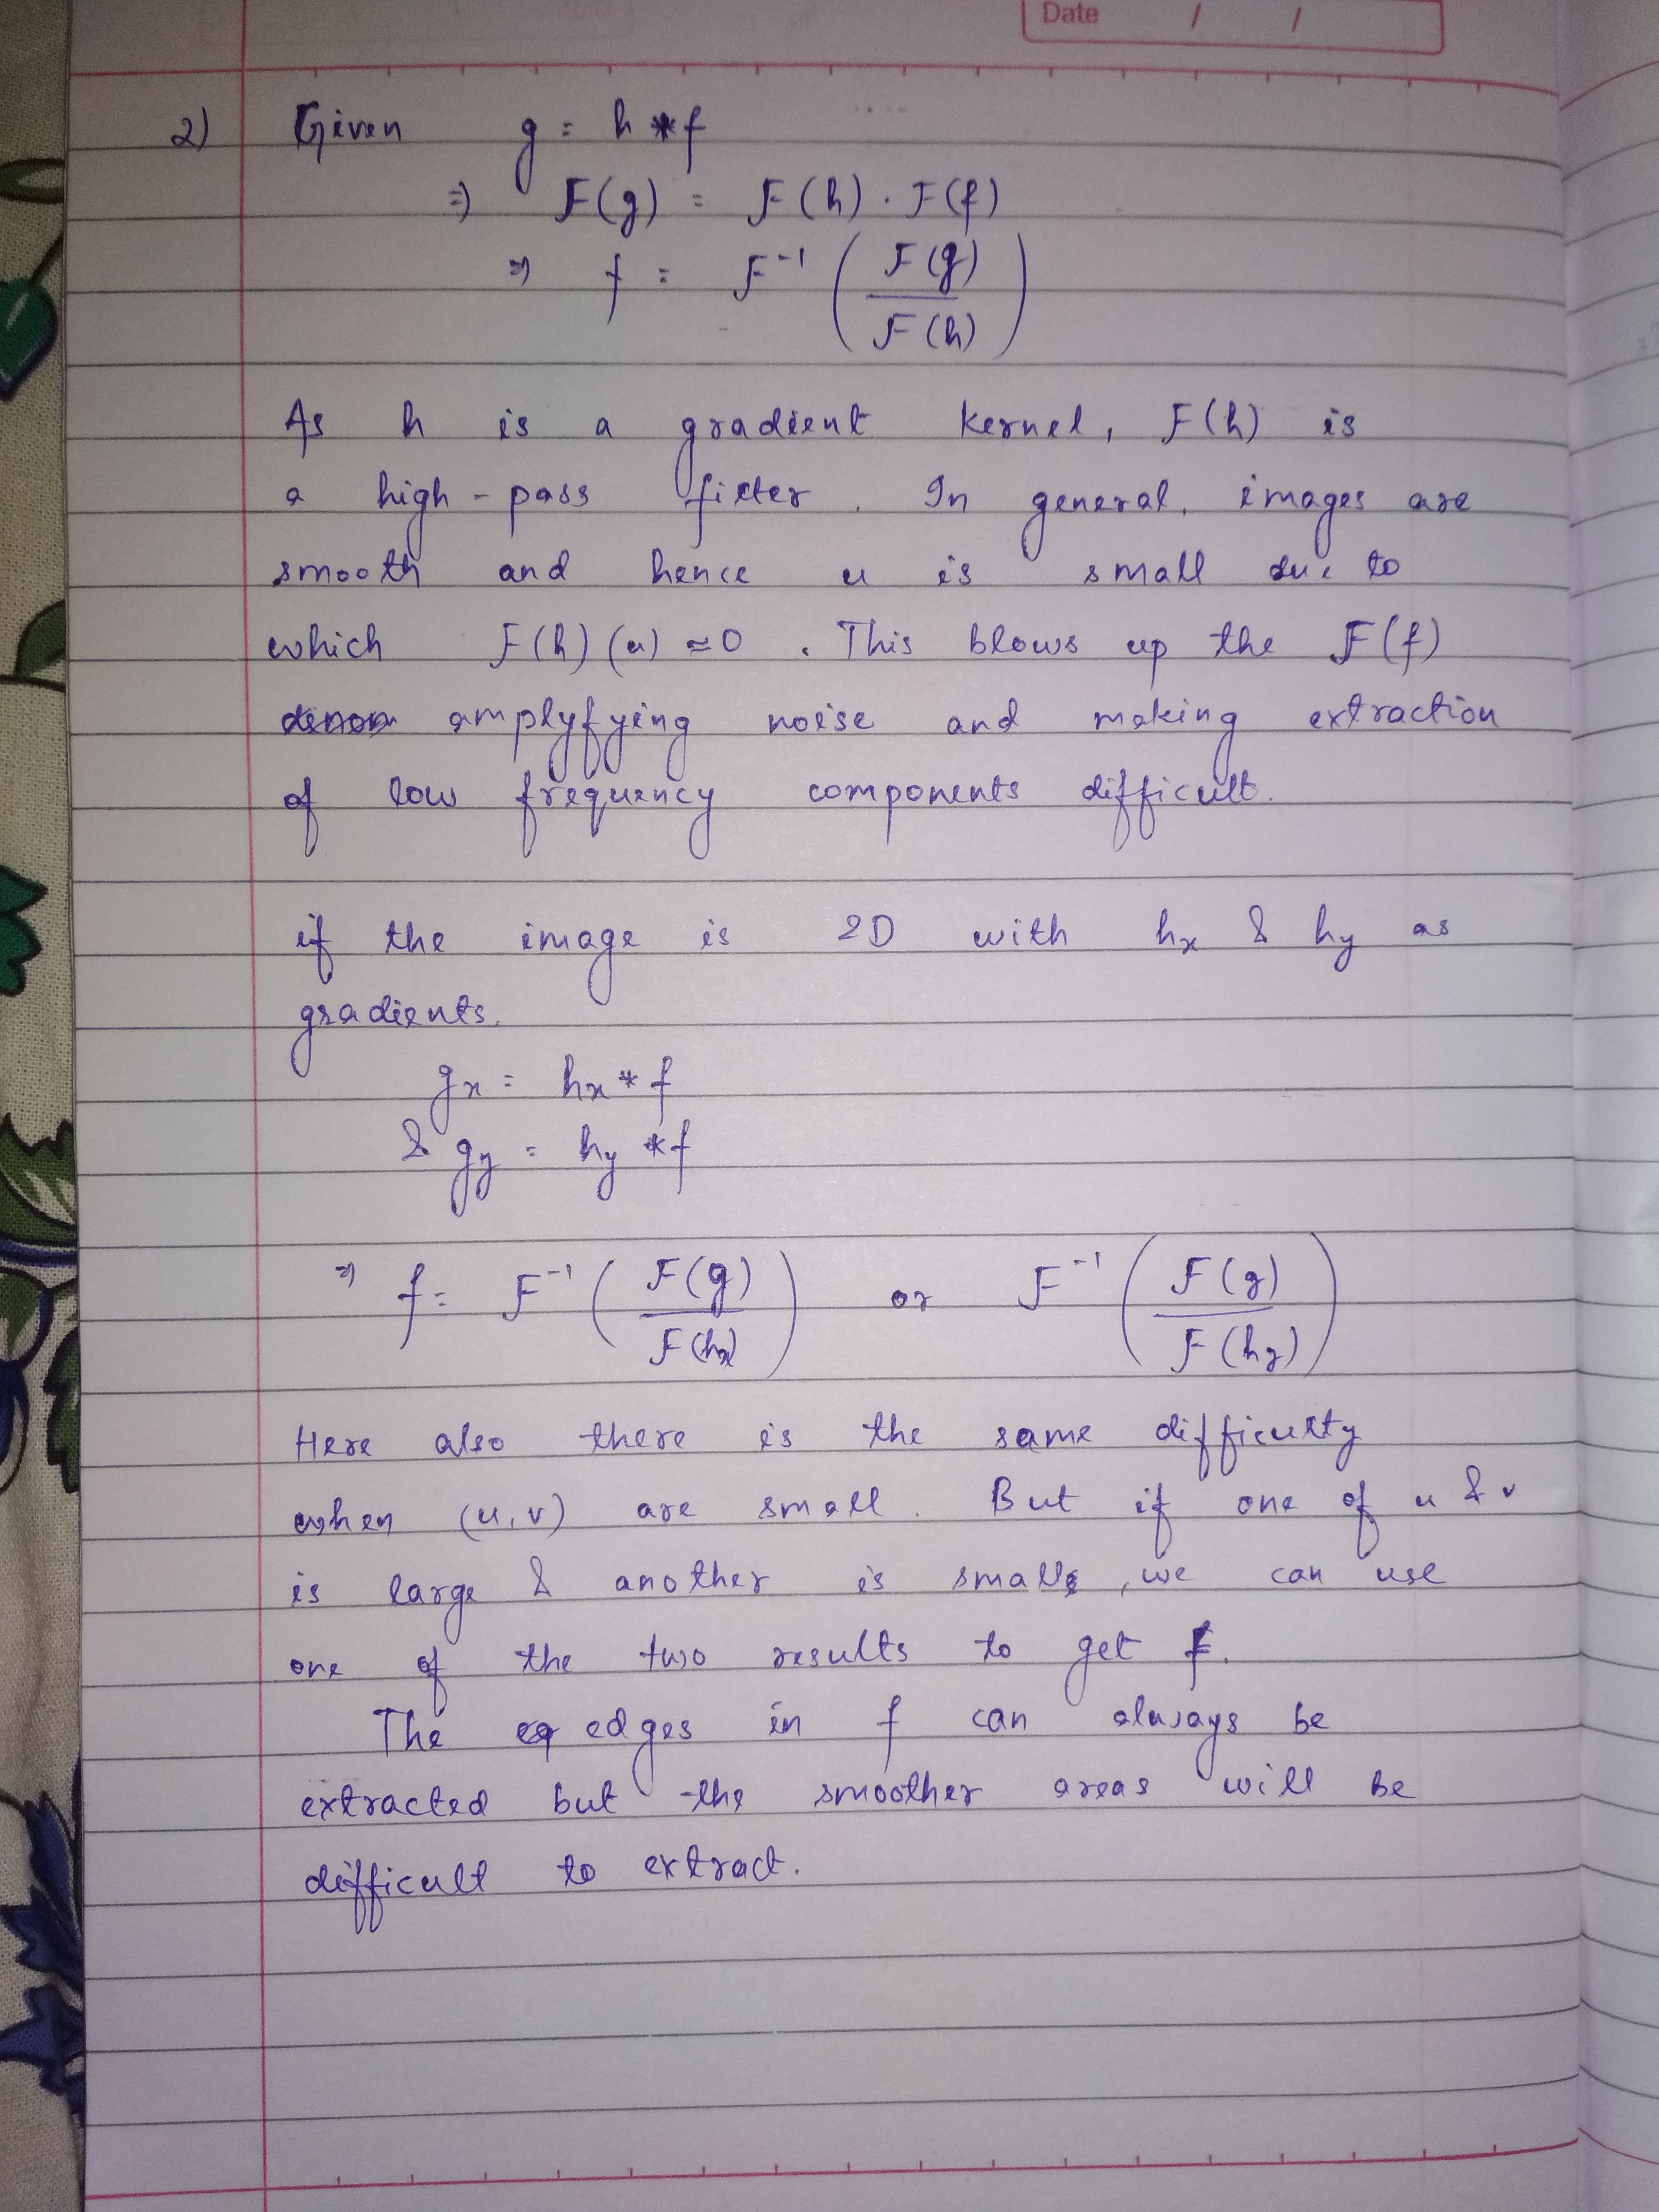 Date / /
2) Given g = h * f
⇒ F(g) = F(h) . F(f)
⇒ f = F⁻¹ ( F(g) / F(h) )
As h is a gradient kernel, F(h) is
a high-pass filter. In general, images are
smooth and hence u is small due to
which F(h)(u) ≈ 0. This blows up the F(f)
amplyfying noise and making extraction
of low frequency components difficult.
if the image is 2D with hx & hy as
gradients.
gx = hx * f
& gy = hy * f
⇒ f = F⁻¹ ( F(g) / F(hx) ) or F⁻¹ ( F(g) / F(hy) )
Here also there is the same difficulty
when (u, v) are small. But if one of u & v
is large & another is small, we can use
one of the two results to get f.
The edges in f can always be
extracted but the smoother areas will be
difficult to extract.